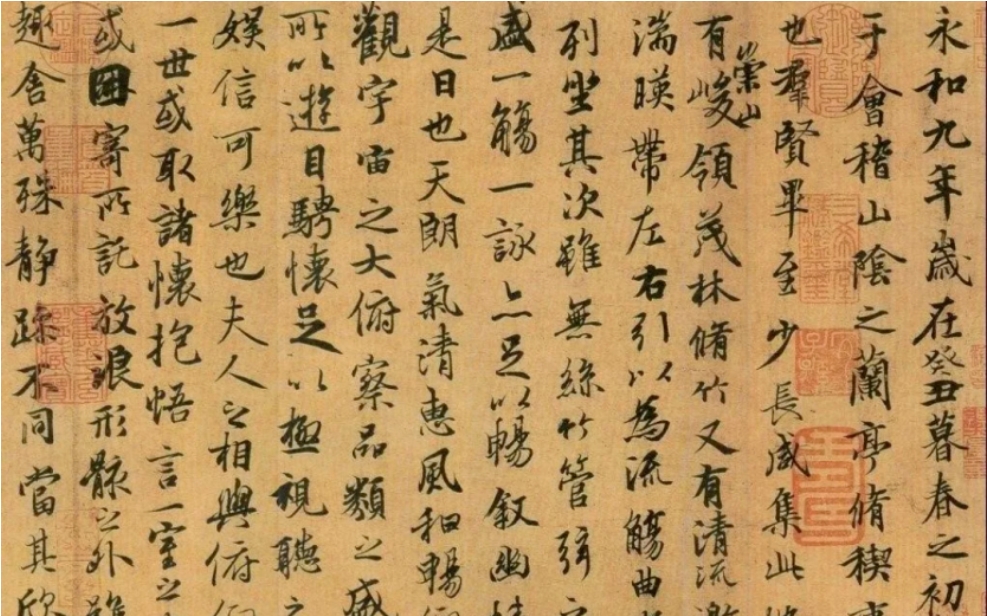 永和九年歲在癸丑暮春之初
于會稽山陰之蘭亭脩稧
也羣賢畢至少長咸集此
有崇山峻領茂林脩竹又有清流激
湍暎帶左右引以為流觴曲
列坐其次雖無絲竹管弦之
盛一觴一詠亦足以暢敘幽情
是日也天朗氣清惠風和暢仰
觀宇宙之大俯察品類之盛
所以遊目騁懷足以極視聽之
娛信可樂也夫人之相與俯仰
一世或取諸懷抱悟言一室之
或因寄所託放浪形骸之外雖
趣舍萬殊靜躁不同當其欣